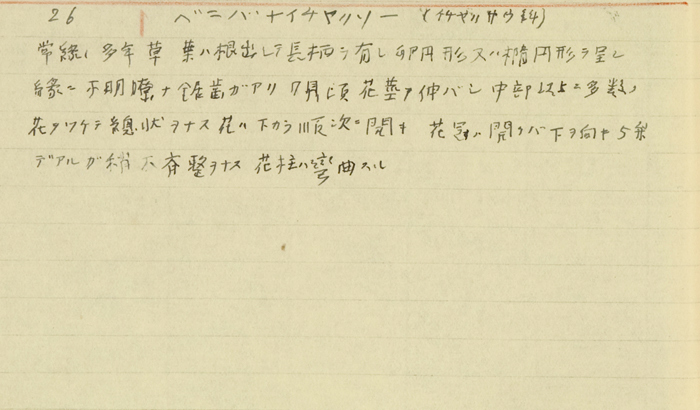 26 ベニバナイチヤクソー (イチヤクサウ科)
常緑ノ多年草 葉ハ根出シテ長柄ヲ有シ卵円形又ハ楕円形ヲ呈シ
縁ニ不明瞭ナ鋸歯ガアリ 7月頃花茎ヲ伸バシ中部以上ニ多数ノ
花ヲツケテ總状ヲナス 花ハ下カラ順次ニ開キ 花冠ハ開クバ下ヲ向ヤ5裂
デアルガ稍不斉整ヲナス 花柱ハ彎曲スル